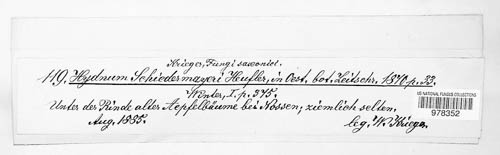 Krieger, Fungi saxonici.
119. Hydnum Schiedermayeri Heufler, in Oest. bot. Zeitschr. 1870 p. 33.
Winter, I. p. 375.
Unter der Rinde alter Aepfelbäume bei Nossen; ziemlich selten.
Aug. 1885. leg. W. Krieger.
US NATIONAL FUNGUS COLLECTIONS
978352